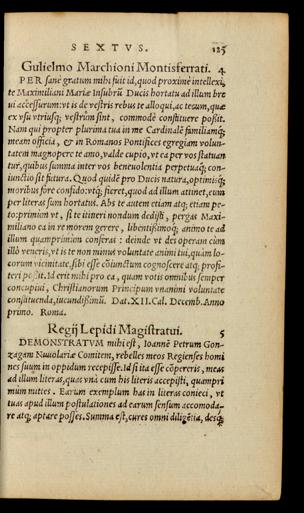 SEXTVS. 125
Gulielmo Marchioni Montisferrati. 4
PER sanè gratum mihi fuit id, quod proximè intellexi,
te Maximiliani Mariæ Insubrũ Ducis hortatu ad illum bre
ui accessurum: vt is de vestris rebus te alloqui, ac tecum, quæ
ex vsu vtriusq; vestrûm sint, commodè constituere possit.
Nam qui propter plurima tua in me Cardinalẽ familiamq;
meam officia, & in Romanos Pontifices egregiam volun-
tatem magnopere te amo, valde cupio, vt ea per vos statuan
tur, quibus summa inter vos beneuolentia perpetuaq; con-
iunctio sit futura. Quod quidẽ pro Ducis natura, optimisq;
moribus fore confido: vtq; fieret, quod ad illum attinet, eum
per literas sum hortatus. Abs te autem etiam atq; etiam pe-
to: primùm vt, si te itineri nondum dedisti, pergas Maxi-
miliano ea in re morem gerere, libentissimoq; animo te ad
illum quamprimùm conferas: deinde vt des operam cùm
illò veneris, vt is te non minus voluntate animi tui, quàm lo-
corum vicinitate, sibi esse cõiunctum cognoscere atq; profi-
teri possit. Id erit mihi pro ea, quam votis omnibus semper
concupiui, Christianorum Principum vnanimi voluntate
constituenda, iucundissimũ. Dat. XII. Cal. Decemb. Anno
primo. Roma.
Regij Lepidi Magistratui. 5
DEMONSTRATVM mihi est, Ioannẽ Petrum Gon-
zagam Nuuolariæ Comitem, rebelles meos Regienses homi
nes suum in oppidum recepisse. Id si ita esse cõpereris, meas
ad illum literas, quas vnà cum his literis accepisti, quampri
mùm mittes. Earum exemplum has in literas conieci, vt
tuas apud illum postulationes ad earum sensum accomoda-
re atq; aptare posses. Summa est, cures omni diligẽtia, desq;